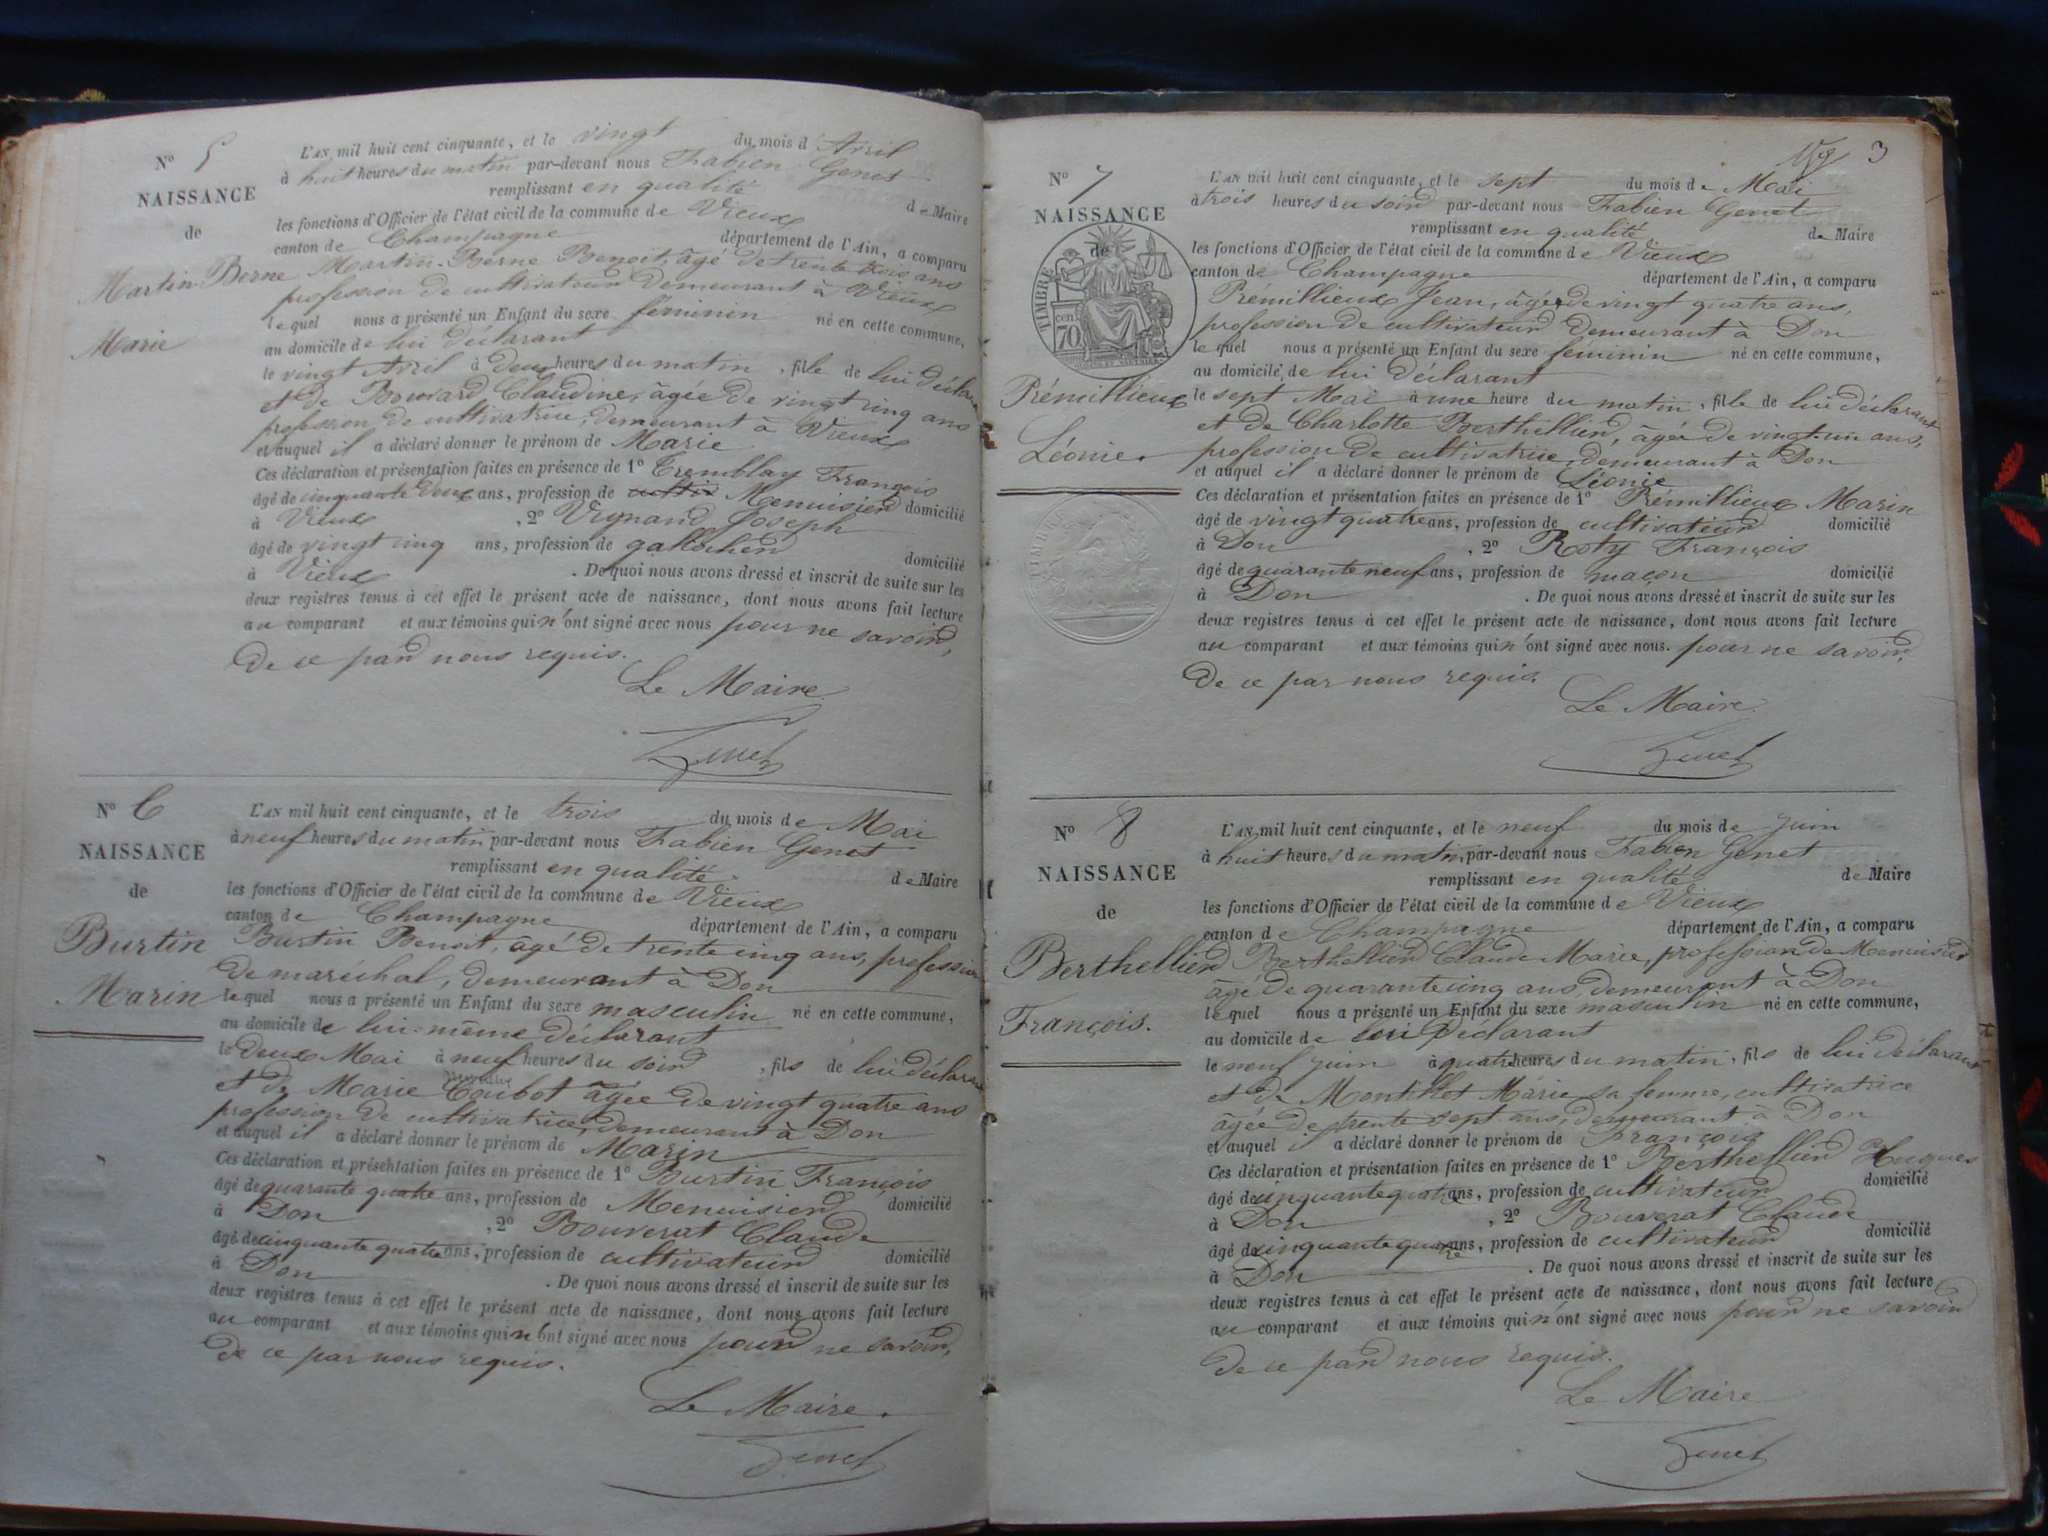 N° 5
NAISSANCE
de
Martin-Berne
Marie
L'AN mil huit cent cinquante, et le vingt du mois d'Avril
à huit heures du matin par-devant nous Fabien Genet
remplissant en qualité de Maire
les fonctions d'Officier de l'état civil de la commune de Vieux
canton de Champagne département de l'Ain, a comparu
Martin-Berne Benoit, âgé de trente trois ans
profession de cultivateur demeurant à Vieux
lequel nous a présenté un Enfant du sexe féminin né en cette commune,
au domicile de lui déclarant
le vingt Avril à deux heures du matin, fille de lui déclarant
et de Bouvard Claudine, âgée de vingt cinq ans
profession de cultivatrice, demeurant à Vieux
et auquel il a déclaré donner le prénom de Marie
Ces déclaration et présentation faites en présence de 1° Tremblay François
âgé de cinquante deux ans, profession de cultiv Menuisier domicilié
à Vieux, 2° Joseph
âgé de vingt cinq ans, profession de gallochier domicilié
à Vieux. De quoi nous avons dressé et inscrit de suite sur les
deux registres tenus à cet effet le présent acte de naissance, dont nous avons fait lecture
au comparant et aux témoins qui n'ont signé avec nous pour ne savoir,
de ce par nous requis.
Le Maire
Genet
N° 6
NAISSANCE
de
Burtin
Marin
L'AN mil huit cent cinquante, et le trois du mois de Mai
à neuf heures du matin par-devant nous Fabien Genet
remplissant en qualité de Maire
les fonctions d'Officier de l'état civil de la commune de Vieux
canton de Champagne département de l'Ain, a comparu
Burtin Benoit, âgé de trente cinq ans, profession
de maréchal, demeurant à Don
lequel nous a présenté un Enfant du sexe masculin né en cette commune,
au domicile de lui-même déclarant
le deux Mai à neuf heures du soir, fils de lui déclarant
et de Marie Coubot âgée de vingt quatre ans
profession de cultivatrice, demeurant à Don
et auquel il a déclaré donner le prénom de Marin
Ces déclaration et présentation faites en présence de 1° Burtin François
âgé de quarante quatre ans, profession de Menuisier domicilié
à Don, 2° Bouverat Claude
âgé de cinquante quatre ans, profession de cultivateur domicilié
à Don. De quoi nous avons dressé et inscrit de suite sur les
deux registres tenus à cet effet le présent acte de naissance, dont nous avons fait lecture
au comparant et aux témoins qui n'ont signé avec nous pour ne savoir,
de ce par nous requis.
Le Maire.
Genet
3
N° 7
NAISSANCE
de
TIMBRE
70 cen
Prémillieux
Léonie.
L'AN mil huit cent cinquante, et le sept du mois de Mai
à trois heures du soir par-devant nous Fabien Genet
remplissant en qualité de Maire
les fonctions d'Officier de l'état civil de la commune de Vieux
canton de Champagne département de l'Ain, a comparu
Prémillieux Jean, âgé de vingt quatre ans,
profession de cultivateur demeurant à Don
lequel nous a présenté un Enfant du sexe féminin né en cette commune,
au domicile de lui déclarant
le sept Mai à une heure du matin, fille de lui déclarant
et de Charlotte Berthellier, âgée de vingt-un ans,
profession de cultivatrice, demeurant à Don
et auquel il a déclaré donner le prénom de Léonie
Ces déclaration et présentation faites en présence de 1° Prémillieux Marin
âgé de vingt quatre ans, profession de cultivateur domicilié
à Don, 2° Roty François
âgé de quarante neuf ans, profession de maçon domicilié
à Don. De quoi nous avons dressé et inscrit de suite sur les
deux registres tenus à cet effet le présent acte de naissance, dont nous avons fait lecture
au comparant et aux témoins qui n'ont signé avec nous. pour ne savoir,
de ce par nous requis.
Le Maire
Genet
N° 8
NAISSANCE
de
Berthellier
François.
L'AN mil huit cent cinquante, et le neuf du mois de juin
à huit heures du matin, par-devant nous Fabien Genet
remplissant en qualité de Maire
les fonctions d'Officier de l'état civil de la commune de Vieux
canton de Champagne département de l'Ain, a comparu
Berthellier Claude Marie, profession de Menuisier
âgé de quarante cinq ans, demeurant à Don
lequel nous a présenté un Enfant du sexe masculin né en cette commune,
au domicile de lui déclarant
le neuf juin à quatre heures du matin, fils de lui déclarant
et de Montillet Marie sa femme, cultivatrice
âgée de trente sept ans, demeurant à Don
et auquel il a déclaré donner le prénom de François
Ces déclaration et présentation faites en présence de 1° Berthellier Hugues
âgé de cinquante quatre ans, profession de cultivateur domicilié
à Don, 2° Bouverat Claude
âgé de cinquante quatre ans, profession de cultivateur domicilié
à Don. De quoi nous avons dressé et inscrit de suite sur les
deux registres tenus à cet effet le présent acte de naissance, dont nous avons fait lecture
au comparant et aux témoins qui n'ont signé avec nous pour ne savoir
de ce par nous requis.
Le Maire
Genet